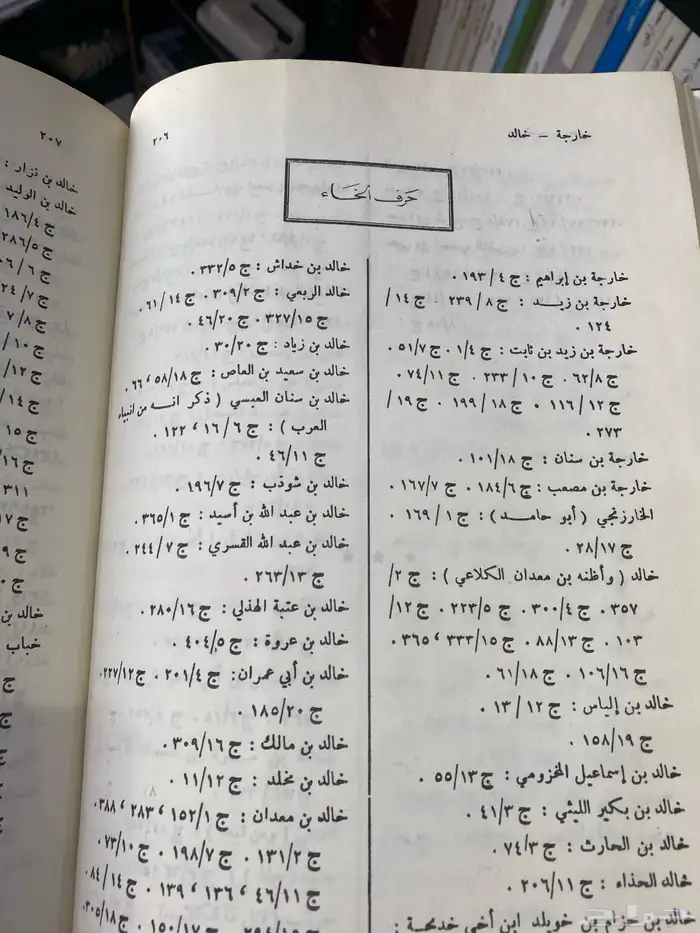 خارجة – خالد
٢٠٦
حَرف الخَاء
خارجة بن إبراهيم : ج ٤ / ١٩٣ .
خارجة بن زيد : ج ٨ / ٢٣٩ ج ١٤ /
١٢٤ .
خارجة بن زيد بن ثابت : ج ١/٤ . ج ٥١/٧ .
ج ٦٢/٨ . ج ١٠ / ٢٣٣ . ج ٧٤/١١ .
ج ١٢ / ١١٦ . ج ١٨ / ١٩٩ . ج ١٩ /
٢٧٣ .
خارجة بن سنان : ج ١٠١/١٨ .
خارجة بن مصعب : ج ١٨٤/٦ . ج ١٦٧/٧ .
الخارزنجي ( أبو حامد ) : ج ١ / ١٦٩ .
ج ٢٨/١٧ .
خالد ( وأظنه بن معدان الكلاعي ) : ج ٢/
٣٥٧ . ج ٣٠٠/٤ . ج ٢٢٣/٥ . ج ١٢/
١٠٣ . ج ٨٨/١٣ . ج ٣٣٣/١٥ ، ٣٦٥ .
ج ١٠٦/١٦ . ج ٦١/١٨ .
خالد بن إلياس : ج ١٢ / ١٣ .
ج ١٥٨/١٩ .
خالد بن إسماعيل المخزومي : ج ٥٥/١٣ .
خالد بن بكير الليثي : ج ٤١/٣ .
خالد بن الحارث : ج ٧٤/٣ .
خالد الحذاء : ج ٢٠٦/١١ .
خالد بن حزام بن خويلد ابن أخي خديجة :
خالد بن خداش : ج ٣٣٢/٥ .
خالد الربعي : ج ٣٠٩/٢ . ج ٦١/١٤ .
ج ٣٢٧/١٥ . ج ٤٦/٢٠ .
خالد بن زياد : ج ٣٠/٢٠ .
خالد بن سعيد بن العاص : ج ٥٨/١٨ ، ٦٦ .
خالد بن سنان العبسي ( ذكر انه من انبياء
العرب ) : ج ٦ / ١٦ ، ١٢٢ .
ج ٤٦/١١ .
خالد بن شوذب : ج ١٩٦/٧ .
خالد بن عبد الله بن أسيد : ج ٣٦٥/١ .
خالد بن عبد الله القسري : ج ٧ / ٢٤٤ .
ج ٢٦٣/١٣ .
خالد بن عتبة الهذلي : ج ٢٨٠/١٦ .
خالد بن عروة : ج ٤٠٤/٥ .
خالد بن أبي عمران : ج ٢٠١/٤ . ج ٢٢٧/١٢ .
ج ١٨٥/٢٠ .
خالد بن مالك : ج ٣٠٩/١٦ .
خالد بن مخلد : ج ١١/١٢ .
خالد بن معدان : ج ١٥٢/١ ، ٢٨٣ ، ٣٨٨ .
ج ١٣١/٢ . ج ١٩٨/٧ . ج ٧٣/١٠ .
ج ٤٦/١١ ، ١٣٦ ، ١٣٩ . ج ١٤ / ٨٤ .
ج ١٥٠/١٧ . ج ٢٠٥/١٨ .
٢٠٧
خالد بن نزار :
خالد بن الوليد
ج ١٨٦/٤
٢٨٦/٥
ج ٦ /
ج ٧ /
ج ٨ /
ج ١٠ /
ج ١٢/
ج ١٤ /
ج ١٥
٣١١
خالد بن
خباب